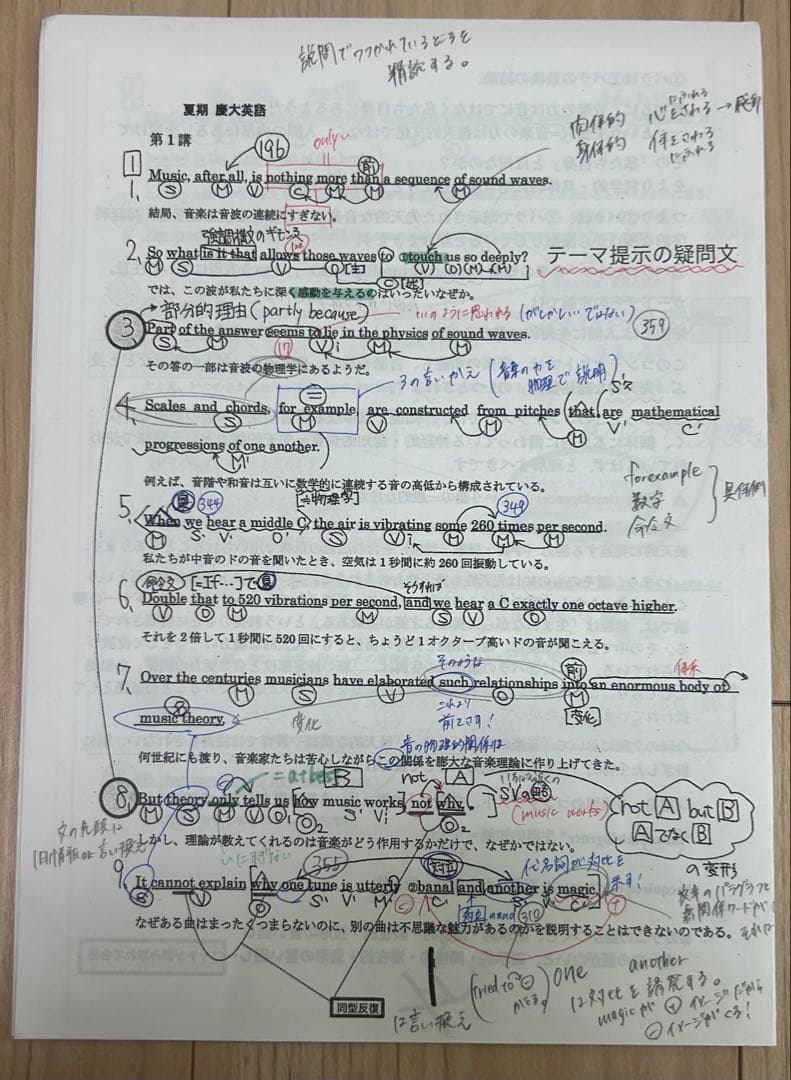 説問でワカれているところを
精読する。
夏期 慶大英語
肉体的 心をさわる→感動
にふれる
第1講
196
only〜
身体的 体をさわる
にふれる
1
前
1. Music, after all, is nothing more than a sequence of sound waves.
S M V C M M
結局、音楽は音波の連続にすぎない。
強調構文のギモン文
2. So what is it that allows those waves to touch us so deeply?
テーマ提示の疑問文
M S V O C (V) (O) (M) (M)
では、この波が私たちに深く感動を与えるのはいったいなぜか。
部分的理由 (partly because)
いのように思われる (がしかし〜ではない)
359
3 Part of the answer seems to lie in the physics of sound waves.
S M 17 Vi M M
その答の一部は音波の物理学にあるようだ。
3の言いかえ (音楽の力を物理で説明)
=
4. Scales and chords, for example, are constructed from pitches that are mathematical
S M V M S' V' C'
progressions of one another.
M'
例えば、音階や和音は互いに数学的に連続する音の高低から構成されている。
for example
数字
命令文
具体例
344
349
5. When we hear a middle C, the air is vibrating some 260 times per second.
M S' V' O' S Vi M M M
私たちが中音のドの音を聞いたとき、空気は1秒間に約260回振動している。
命令文 [=If…]で
そうすれば
6. Double that to 520 vibrations per second, and we hear a C exactly one octave higher.
V O M M S V O M
それを2倍して1秒間に520回にすると、ちょうど1オクターブ高いドの音が聞こえる。
そのような
前
体系
7. Over the centuries musicians have elaborated such relationships into an enormous body of
M S V O M
これより
前をさす!
[変化]
music theory.
変化
音の物理的関係は
何世紀にも渡り、音楽家たちは苦心しながらこの関係を膨大な音楽理論に作り上げてきた。
B
not A
= at best
SVの
8. But theory only tells us [how music works], not [why].
(music works)
S M V O1 O2 S' Vi' O2
not A but B
AでなくB
の変形
文の先頭は
旧情報or言い換え
しかし、理論が教えてくれるのは音楽がどう作用するかだけで、なぜかではない。
355
対立
代名詞が対比を示す!
9. It cannot explain [why one tune is utterly banal and another is magic.]
S V O S' V' M' C' S' V' C'
310
なぜある曲はまったくつまらないのに、別の曲は不思議な魅力があるのかを説明することはできないのである。
one another
は対比を誘発する。
magicが⊕イメージだから
⊖イメージがくる!
同型反復
は言い換え